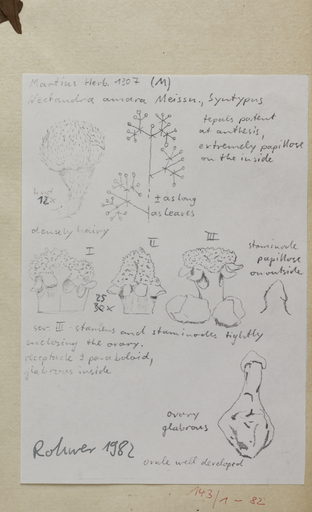 Martius Herb. 1307 (M)
Nectandra amara Meissn., Syntypus
tepals patent
at anthesis,
extremely papillose
on the inside
12x
± as long
as leaves
densely hairy
I
II
III
staminode
papillose
on outside
25
30x
ser. III - stamens and staminodes tightly
enclosing the ovary.
receptacle ± paraboloid,
glabrous inside
ovary
glabrous
Rohwer 1982
ovule well developed
143/1-82